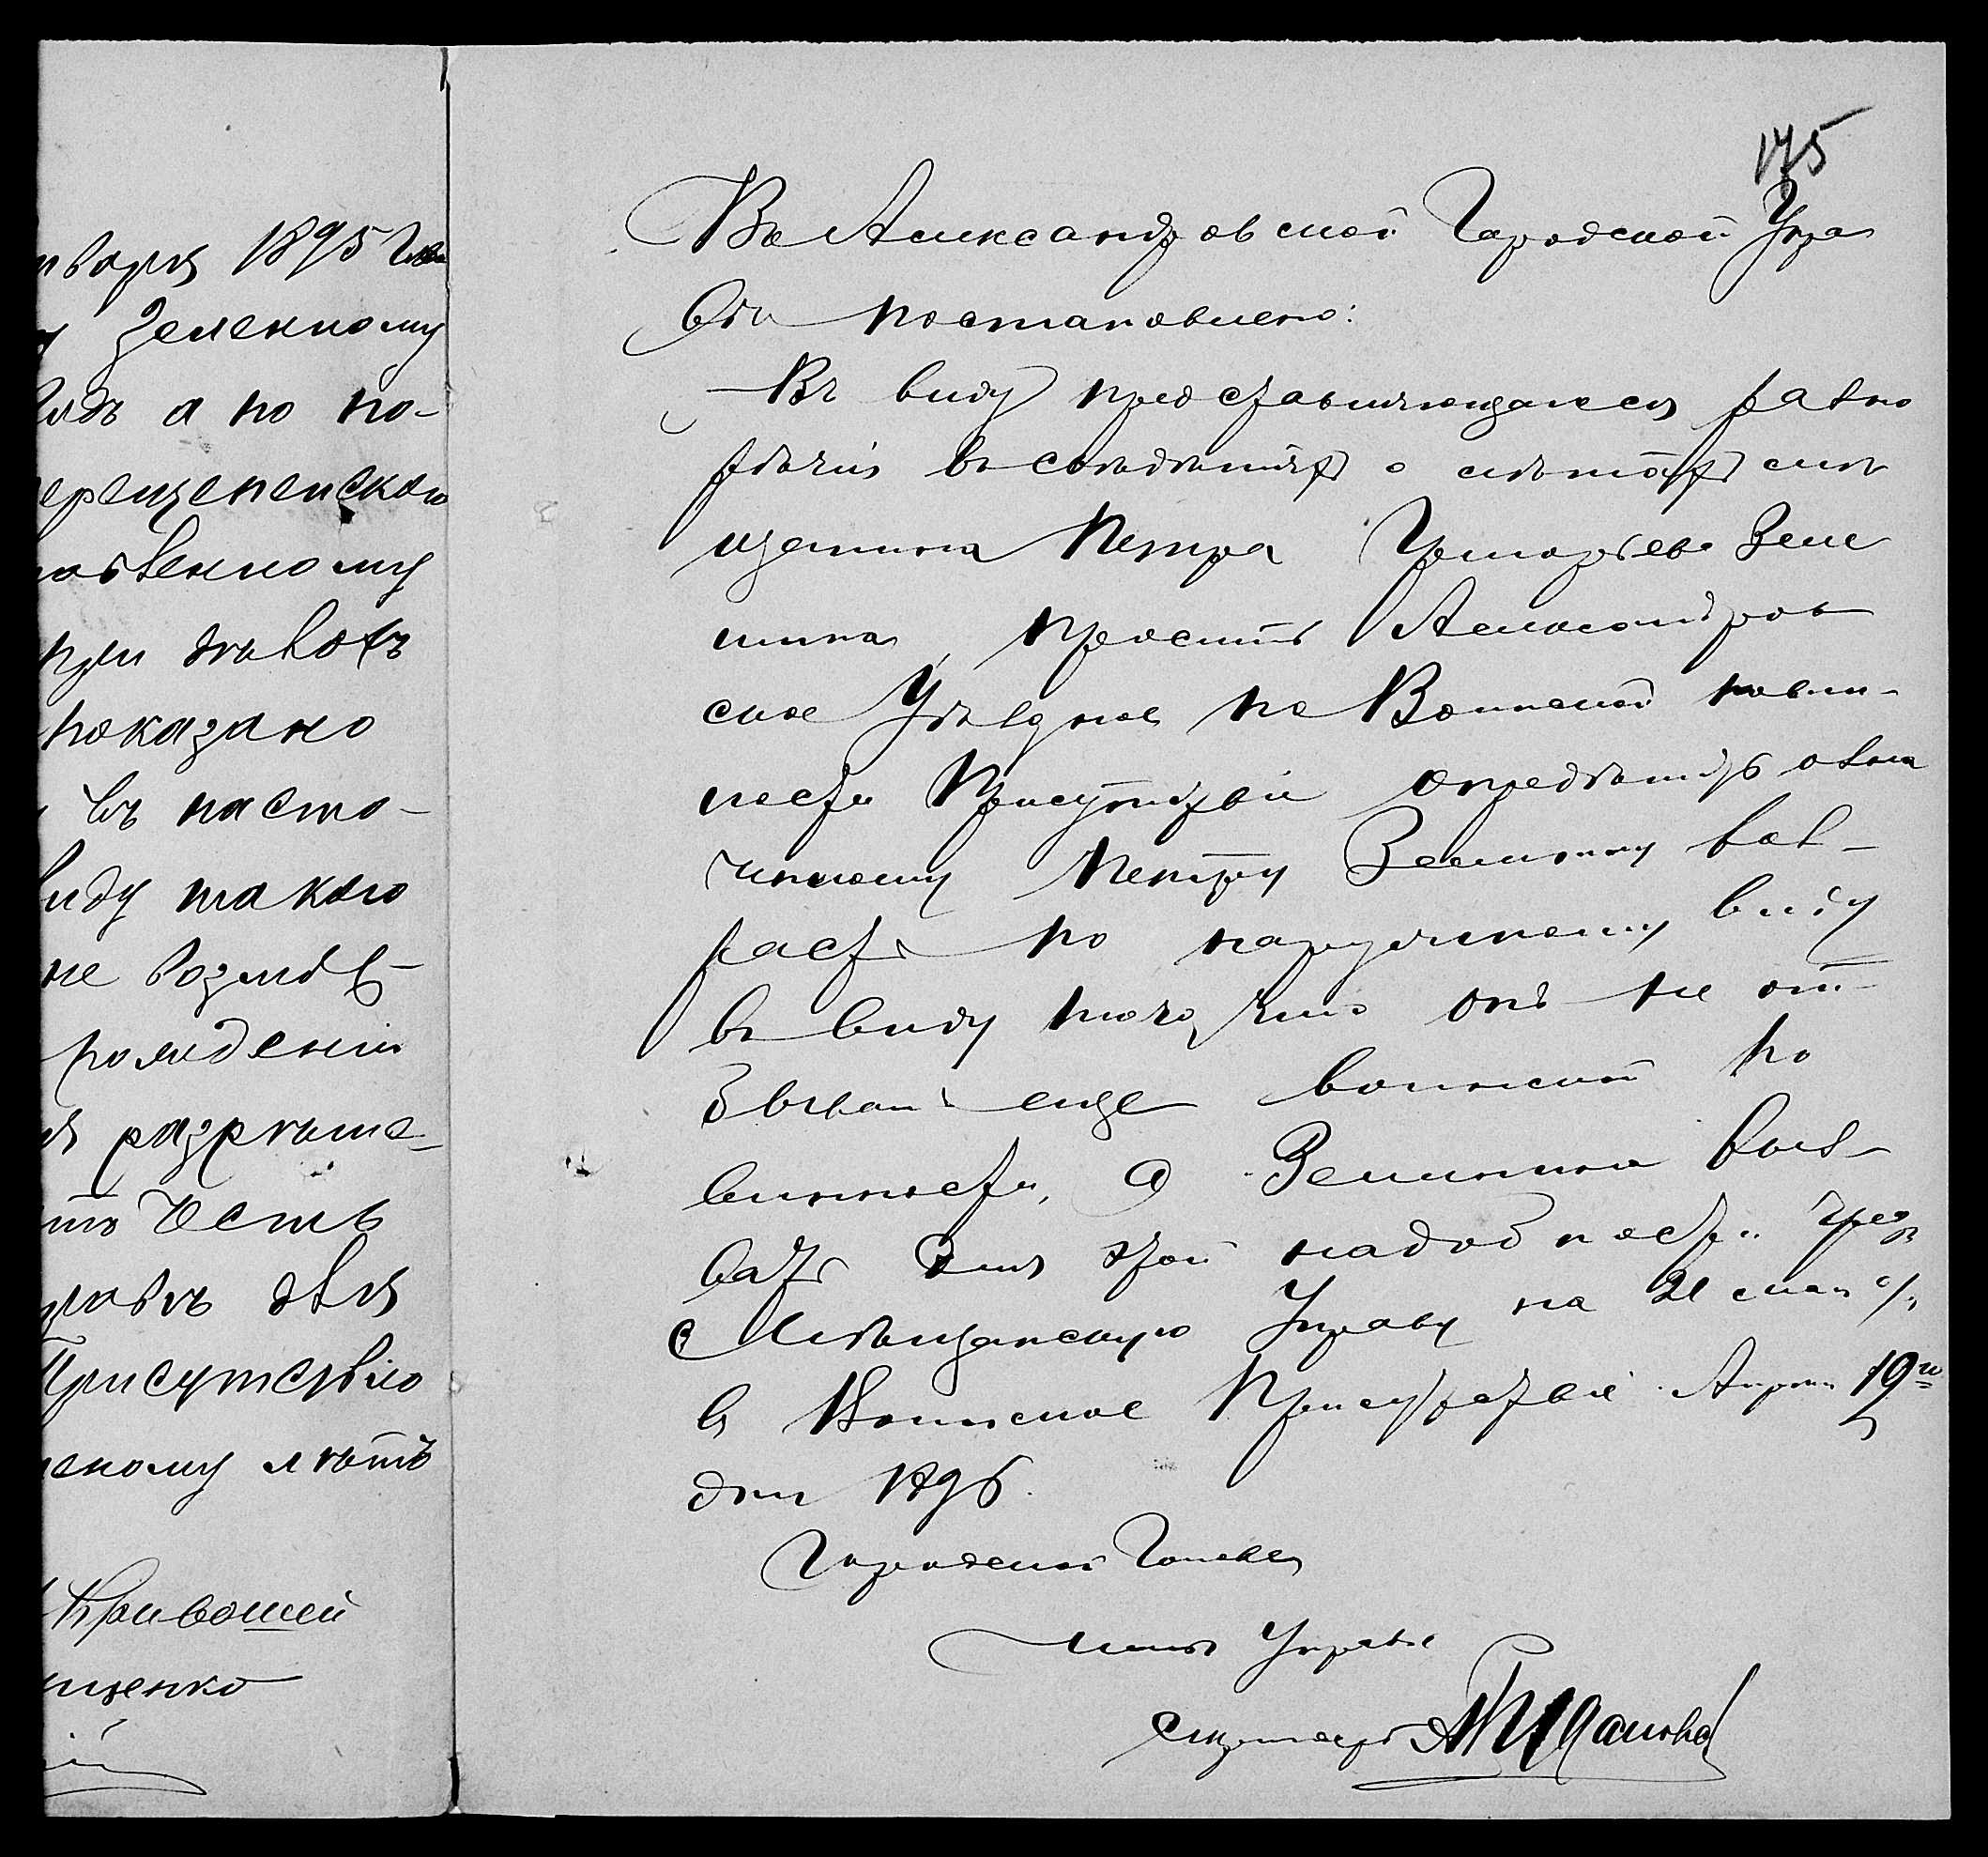 нваря 1895 года
Зеленкому
а по по-
ерещепенского
при двлахъ
показано
въ насто-
виду такого
не возмож-
рождении
разреше-
честь
для
Присутствію
скому лѣтъ
Кривошей
щенко
175
Въ Александровской Городской Упра
вѣ постановлено:
Въ виду представляющагося разно
рѣчія въ свѣдѣніяхъ о лѣтахъ мѣ
щанина Петра Григорьева Зеле
просить Александров
ское Уѣздное по Воинской повин-
ности Присутствіе опредѣлить озна
ченному Петру Зеленому воз-
растъ по наружному виду
въ виду того, что онъ не от-
бывалъ еще воинской по
винности, а Зеленина выз-
вать для этой надобности чрез
Мѣщанскую Управу на 21 мая с/г
в Воинское Присутствіе. Апрѣля 19го
дня 1896.
Городской Голова
Членъ Управы
Секретарь